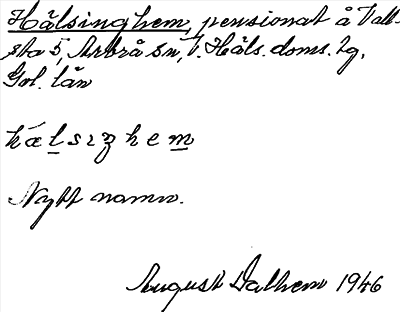 Hälsinghem, pensionat å Vall-
sta 5, Arbrå sn, V. Häls. doms. tg.
Gvl. län
hǽlsıŋhem
Nytt namn.
August Dalhem 1946